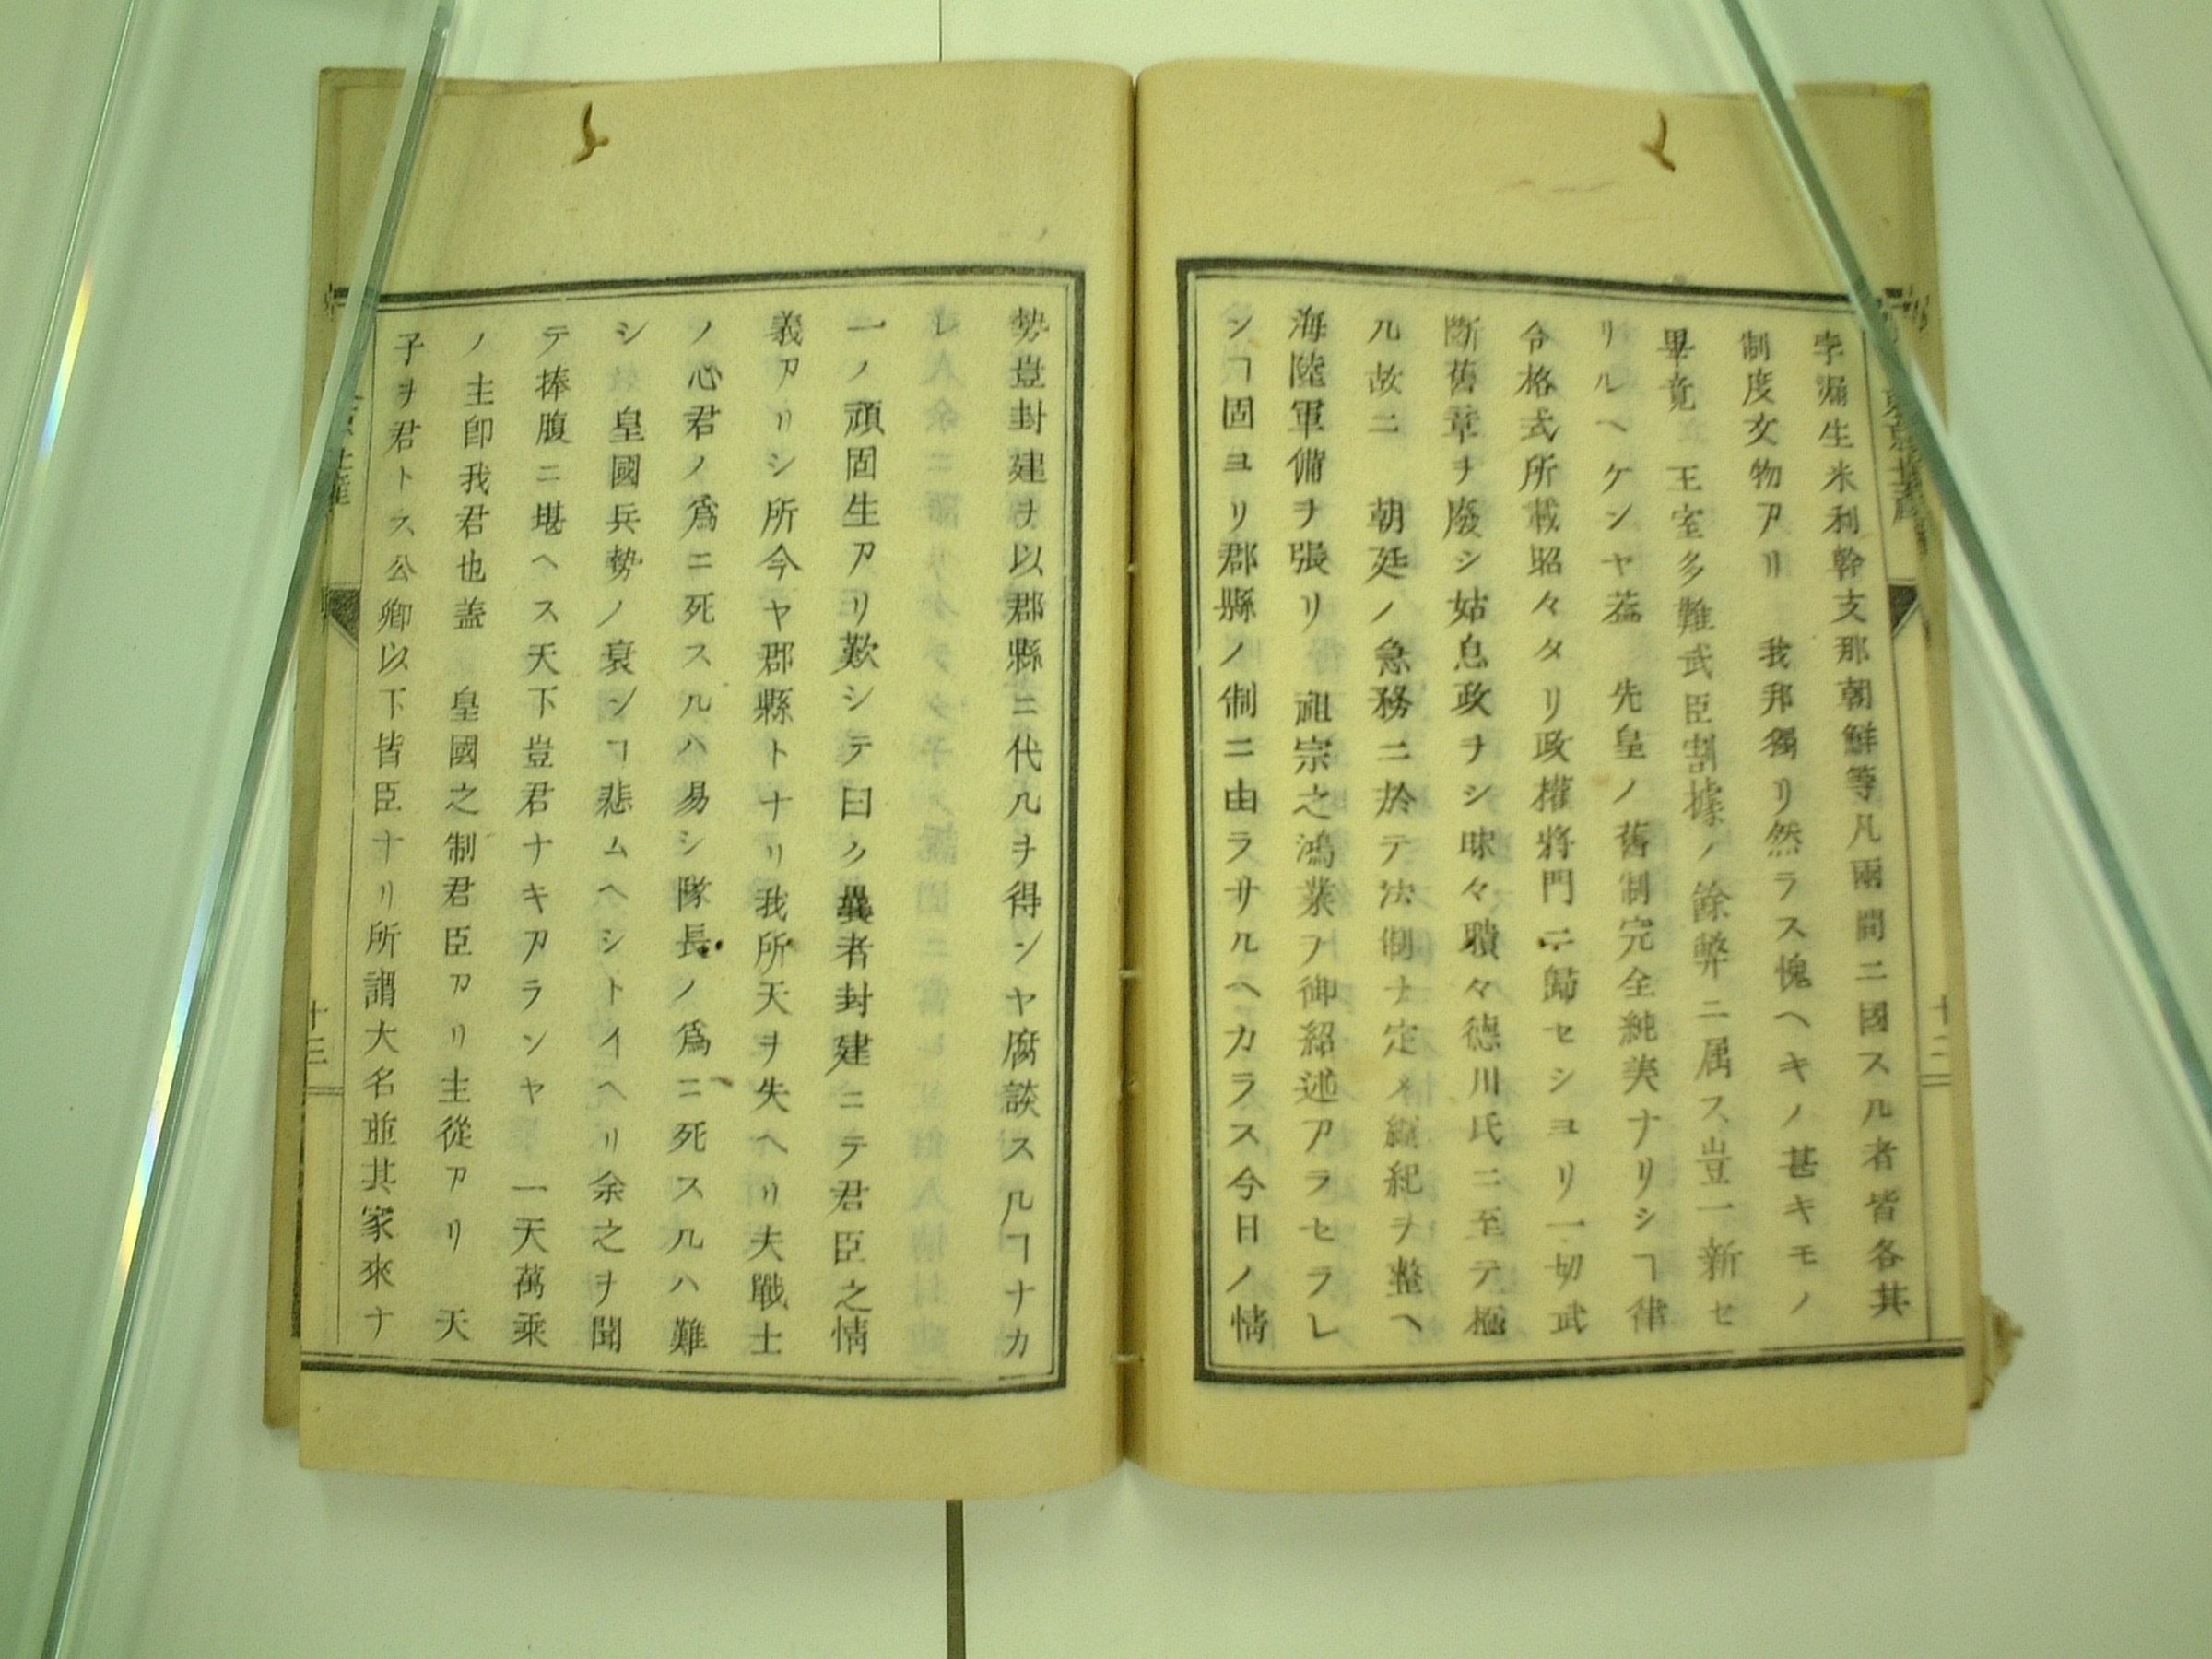 孛漏生米利幹支那朝鮮等凡兩間ニ國スル者皆各其
制度文物アリ　我邦獨リ然ラス愧ヘキノ甚キモノ
畢竟　王室多難武臣割據ノ餘弊ニ属ス豈一新セ
リルヘケンヤ葢　先皇ノ舊制完全純美ナリシヿ律
令格式所載昭々タリ政權將門ニ歸セシヨリ一切武
斷舊章ヲ廢シ姑息政ヲナシ昧々聵々德川氏ニ至テ極
ル故ニ　朝廷ノ急務ニ於テ法制ヲ定メ綱紀ヲ整ヘ
海陸軍備ヲ張リ　祖宗之鴻業ヲ御紹述アラセラレ
ンヿ固ヨリ郡縣ノ制ニ由ラサルヘカラス今日ノ情
勢豈封建ヲ以郡縣ニ代ルヲ得ンヤ腐談スルヿナカ
レ
一ノ頑固生アリ歎シテ曰ク曩者封建ニテ君臣之情
義アリシ所今ヤ郡縣トナリ我所天ヲ失ヘリ夫戰士
ノ心君ノ爲ニ死スルハ易シ隊長ノ爲ニ死スルハ難
シ　皇國兵勢ノ衰ンヿ悲ムヘシトイヘリ余之ヲ聞
テ捧腹ニ堪ヘス天下豈君ナキアランヤ　一天萬乘
ノ主卽我君也盖　皇國之制君臣アリ主從アリ　天
子ヲ君トス公卿以下皆臣ナリ所謂大名並其家來ナ
十二
十三